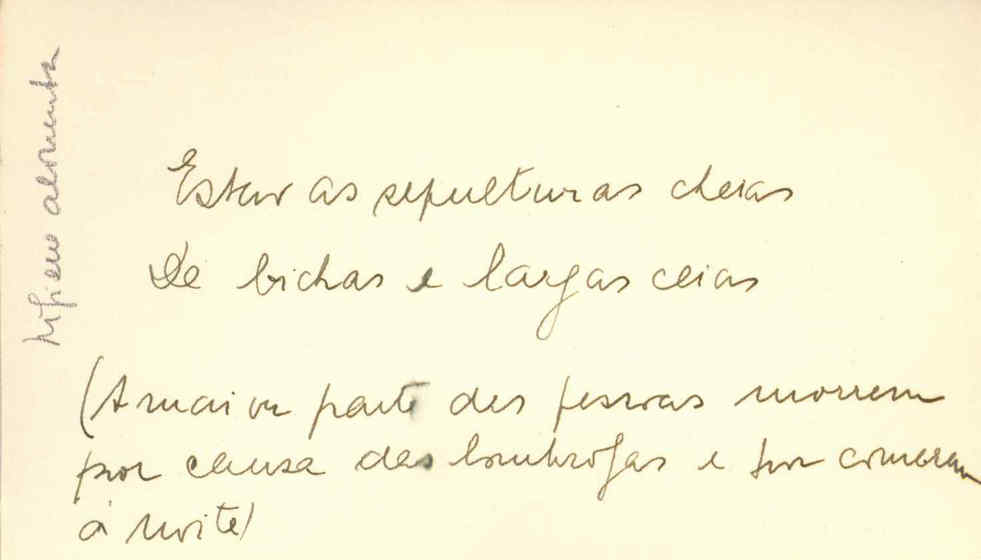 higiene alimentar
Estão as sepulturas cheias
De bichas e largas ceias
(A maior parte das pessoas morrem
por causa das lombrigas e por comerem
à noite)